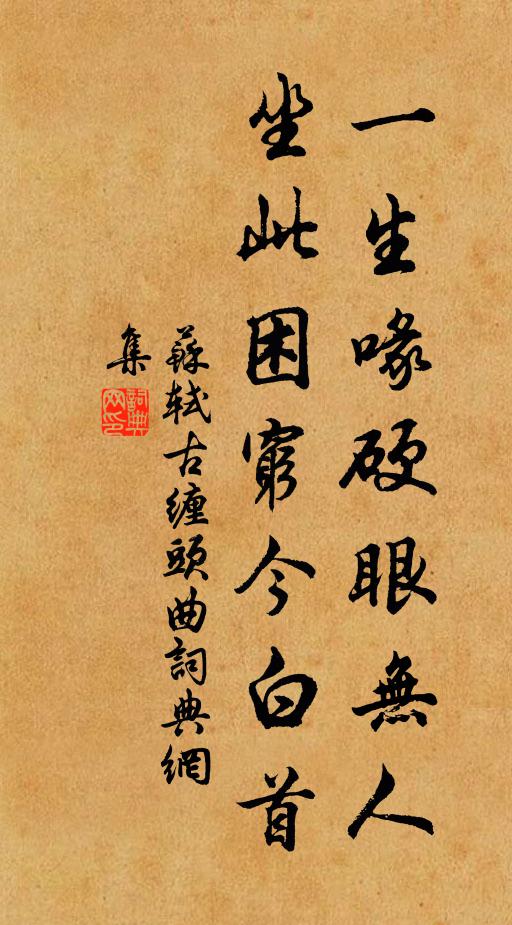 一生喙硬眼無人
坐此困窮今白首
蘇軾古纏頭曲詞典網
集
詞典
网印